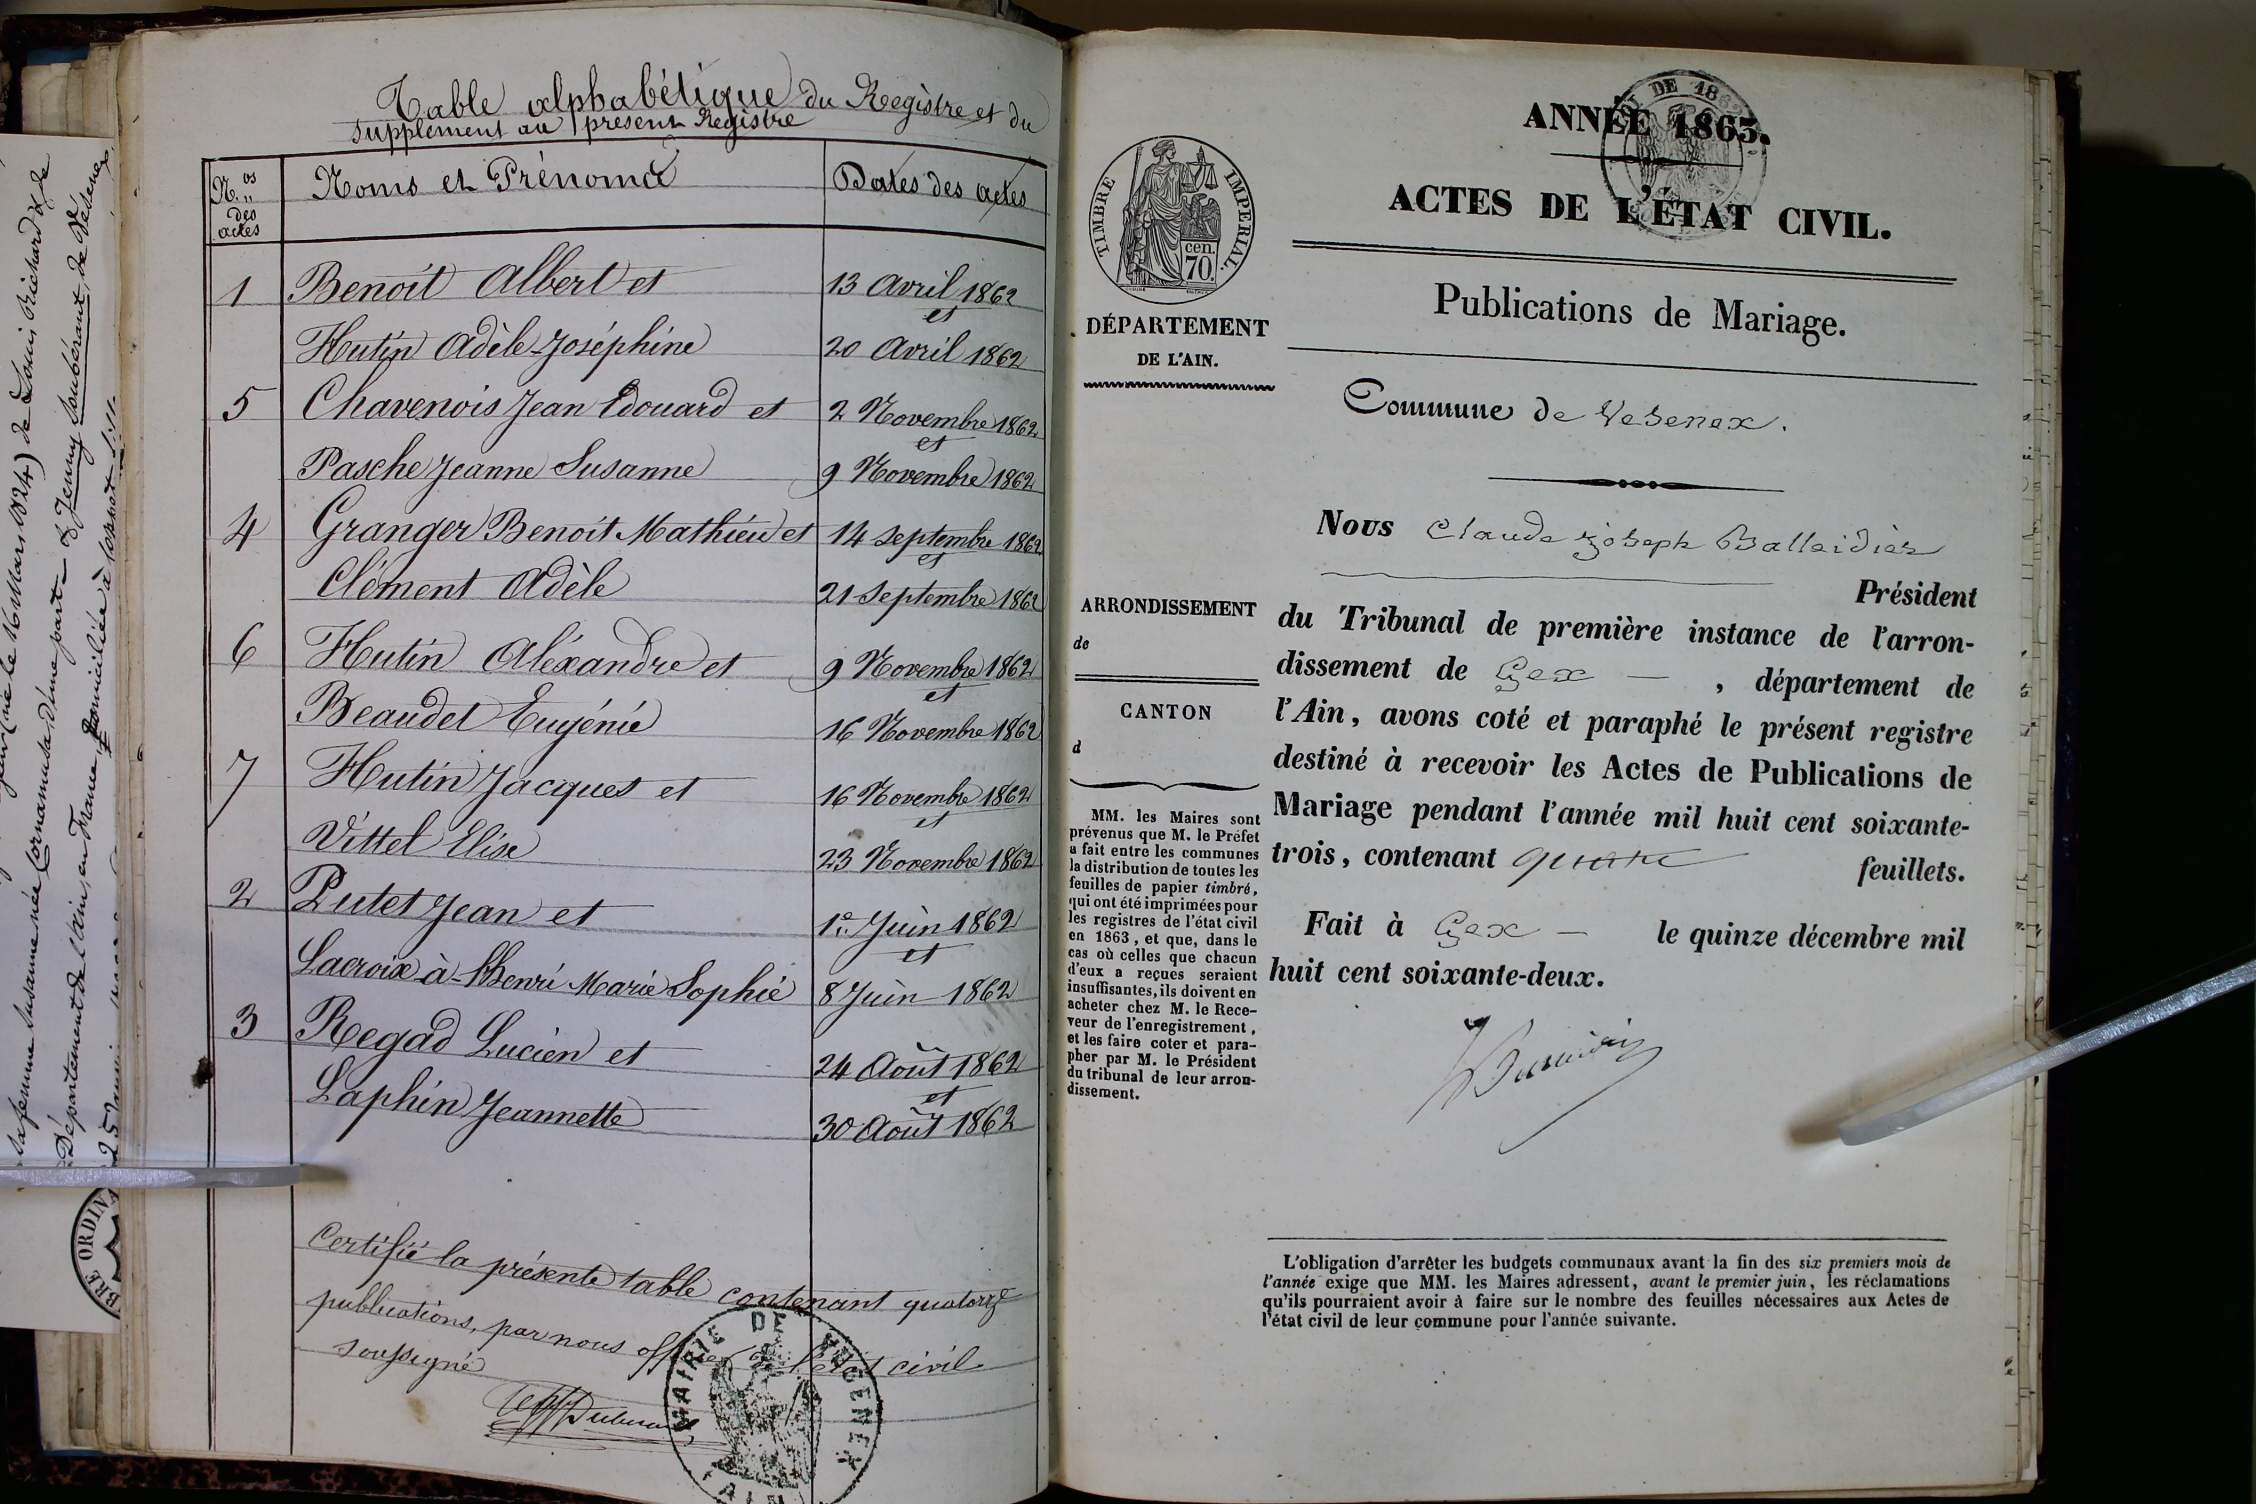 Table alphabétique du Registre et du
supplément au présent Registre
N.os des actes
Noms et Prénoms
Dates des actes
1 Benoit Albert et 13 Avril 1862
et
Hutin Adèle-Joséphine 20 Avril 1862
5 Chavenois Jean Edouard et 2 Novembre 1862
et
Pasche Jeanne Susanne 9 Novembre 1862
4 Granger Benoit Mathieu et 14 septembre 1862
et
Clément Adèle 21 septembre 1862
6 Hutin Aléxandre et 9 Novembre 1862
et
Beaudet Eugénie 16 Novembre 1862
7 Hutin Jacques et 16 Novembre 1862
et
Vittel Elise 23 Novembre 1862
2 Putet Jean et 1er Juin 1862
et
Lacroix à-l'henri Marie Sophie 8 Juin 1862
3 Regad Lucien et 24 Août 1862
et
Laphin Jeannette 30 Août 1862
Certifié la présente table contenant quatorze
publications, par nous officier de l'état civil
soussigné
MAIRIE DE
AIN
sa femme Susanne née Cornamusa d'une part
(né le 16 Mars 1824) de Louis Richard & de
& Jenny Soubérant, de Vésenex,
Département de l'Ain, en France, domiciliée à
BRE ORDIN
ANNÉE 1863.
DE 1862
ACTES DE L'ÉTAT CIVIL.
TIMBRE IMPERIAL.
cen.
70.
DÉPARTEMENT
DE L'AIN.
Publications de Mariage.
Commune de Vesenex.
Nous Claude Joseph Balleidier
Président
du Tribunal de première instance de l'arron-
dissement de Gex — , département de
l'Ain, avons coté et paraphé le présent registre
destiné à recevoir les Actes de Publications de
Mariage pendant l'année mil huit cent soixante-
trois, contenant quatre feuillets.
Fait à Gex — le quinze décembre mil
huit cent soixante-deux.
ARRONDISSEMENT
de
CANTON
d
MM. les Maires sont
prévenus que M. le Préfet
a fait entre les communes
la distribution de toutes les
feuilles de papier timbré,
qui ont été imprimées pour
les registres de l'état civil
en 1863, et que, dans le
cas où celles que chacun
d'eux a reçues seraient
insuffisantes, ils doivent en
acheter chez M. le Rece-
veur de l'enregistrement,
et les faire coter et para-
pher par M. le Président
du tribunal de leur arron-
dissement.
L'obligation d'arrêter les budgets communaux avant la fin des six premiers mois de
l'année exige que MM. les Maires adressent, avant le premier juin, les réclamations
qu'ils pourraient avoir à faire sur le nombre des feuilles nécessaires aux Actes de
l'état civil de leur commune pour l'année suivante.